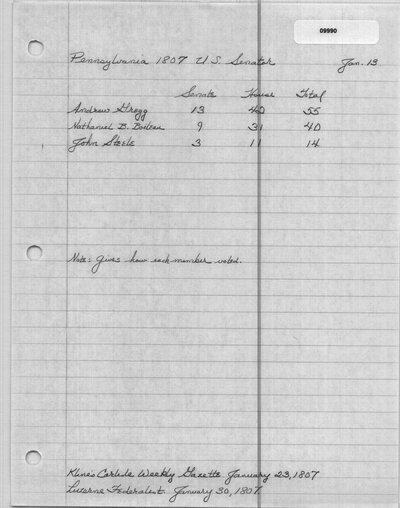 09990
Pennsylvania 1807 U.S. Senator Jan. 13
Senate House Total
Andrew Gregg 13 42 55
Nathaniel B. Boileau 9 31 40
John Steele 3 11 14
Note: Gives how each member voted.
Kline's Carlisle Weekly Gazette January 23, 1807
Luzerne Federalist. January 30, 1807.